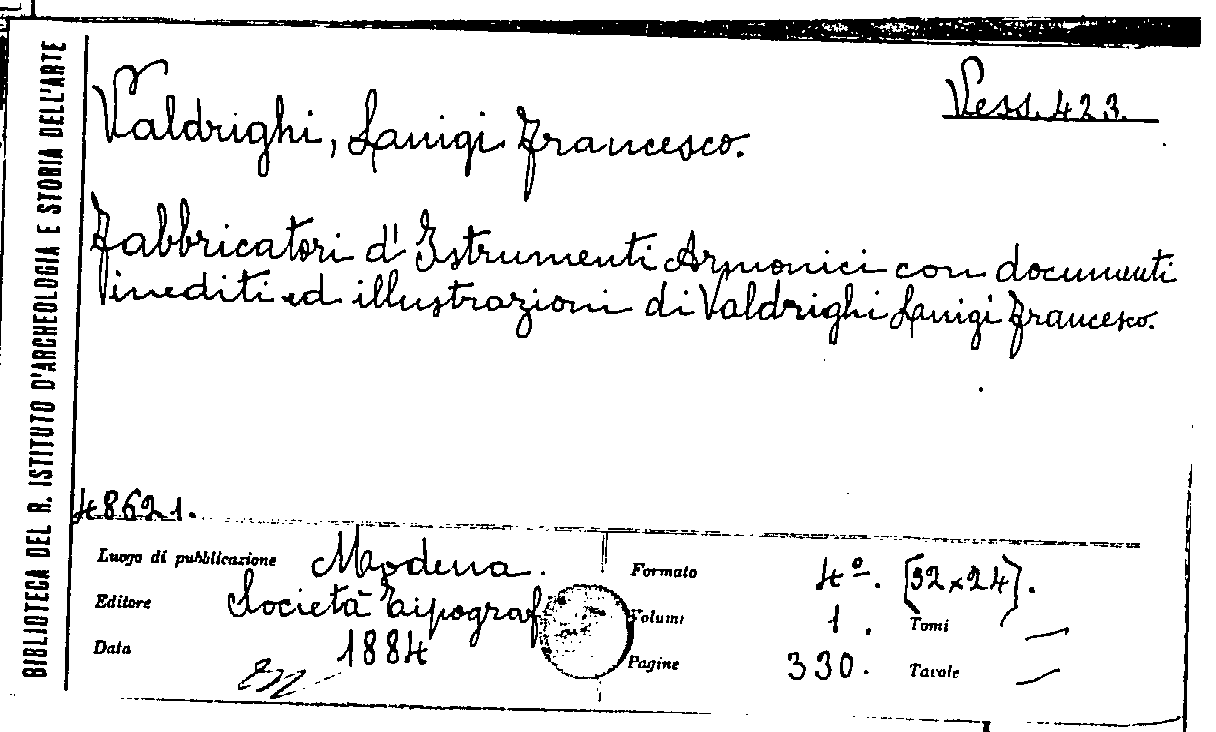 BIBLIOTECA DEL R. ISTITUTO D'ARCHEOLOGIA E STORIA DELL'ARTE
Vess. 423.
Valdrighi, Luigi Francesco.
Fabbricatori d'Istrumenti Armonici con documenti
inediti ed illustrazioni di Valdrighi Luigi Francesco.
48621.
Luogo di pubblicazione Modena.
Editore Società Tipograf
Data 1884
Formato 4º. [32x24].
Volumi 1. Tomi —
Pagine 330. Tavole —